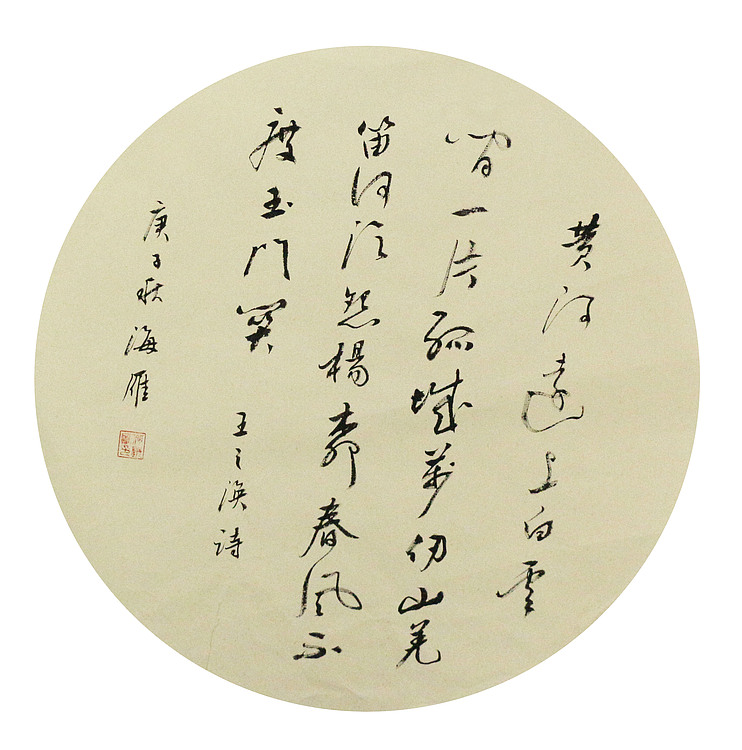 黄河遠上白雲
間一片孤城萬仞山羌
笛何須怨楊柳春風不
度玉門關
王之渙詩
庚子秋海雁